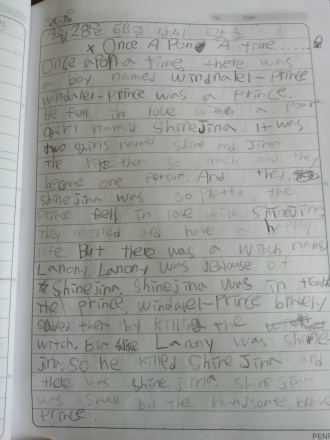 월 28일
x Once A Pon A time......
Once apon a time, there was
a boy named windnaler-Prince
windaler-Prince was a Prince.
He fall in love with a
girl named Shinejina. It was
two girls names Shine and Jina
The like ther so much and they
become one person. And they,
shinejina was so Pretty, the
Prince fell in love with Shinejina
they melled and have a happy
life. But there was a witch name
Lanony. Lanony was Jealouse of
Shinejina, Shinejina was in
the prince, windaler-Prince bravely
saved them by killing the
witch. But Lanony was Shine
jina. So he killed Shinejina and
there was shine jina. Shinejina
was save by the handsome, brave
Prince.